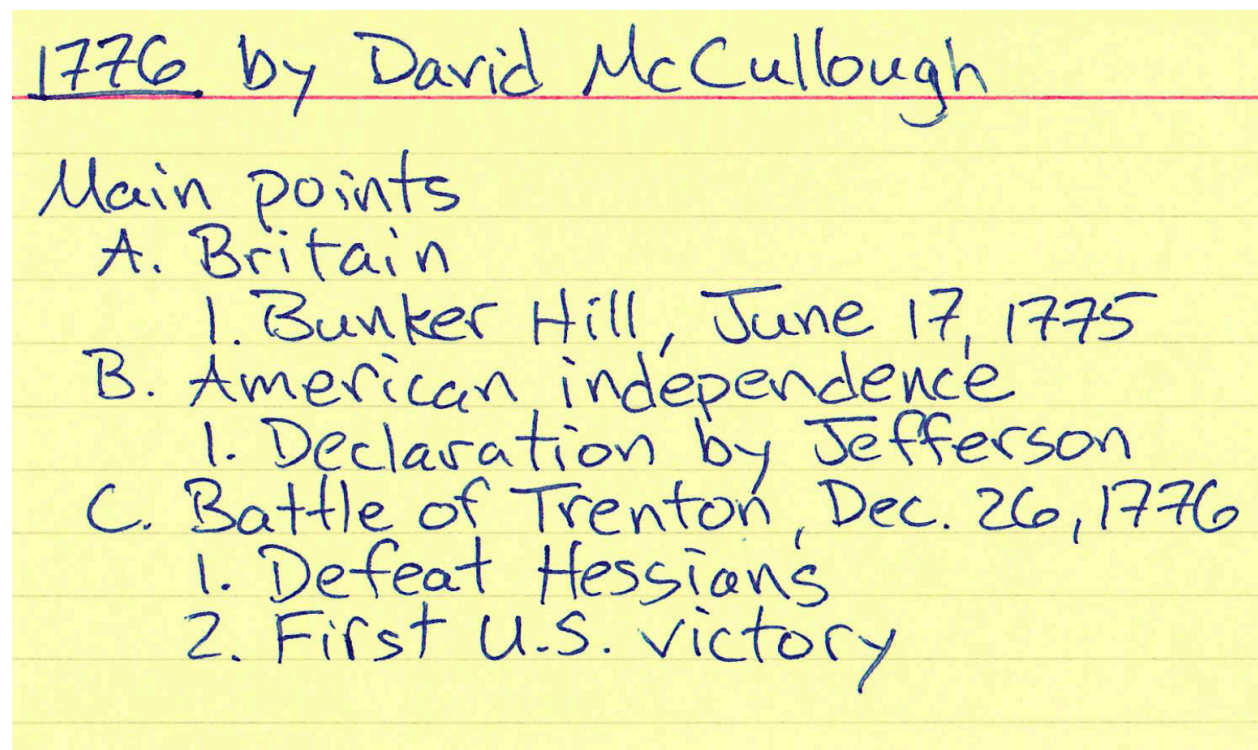 1776 by David McCullough
Main points
A. Britain
1. Bunker Hill, June 17, 1775
B. American independence
1. Declaration by Jefferson
C. Battle of Trenton, Dec. 26, 1776
1. Defeat Hessians
2. First U.S. victory